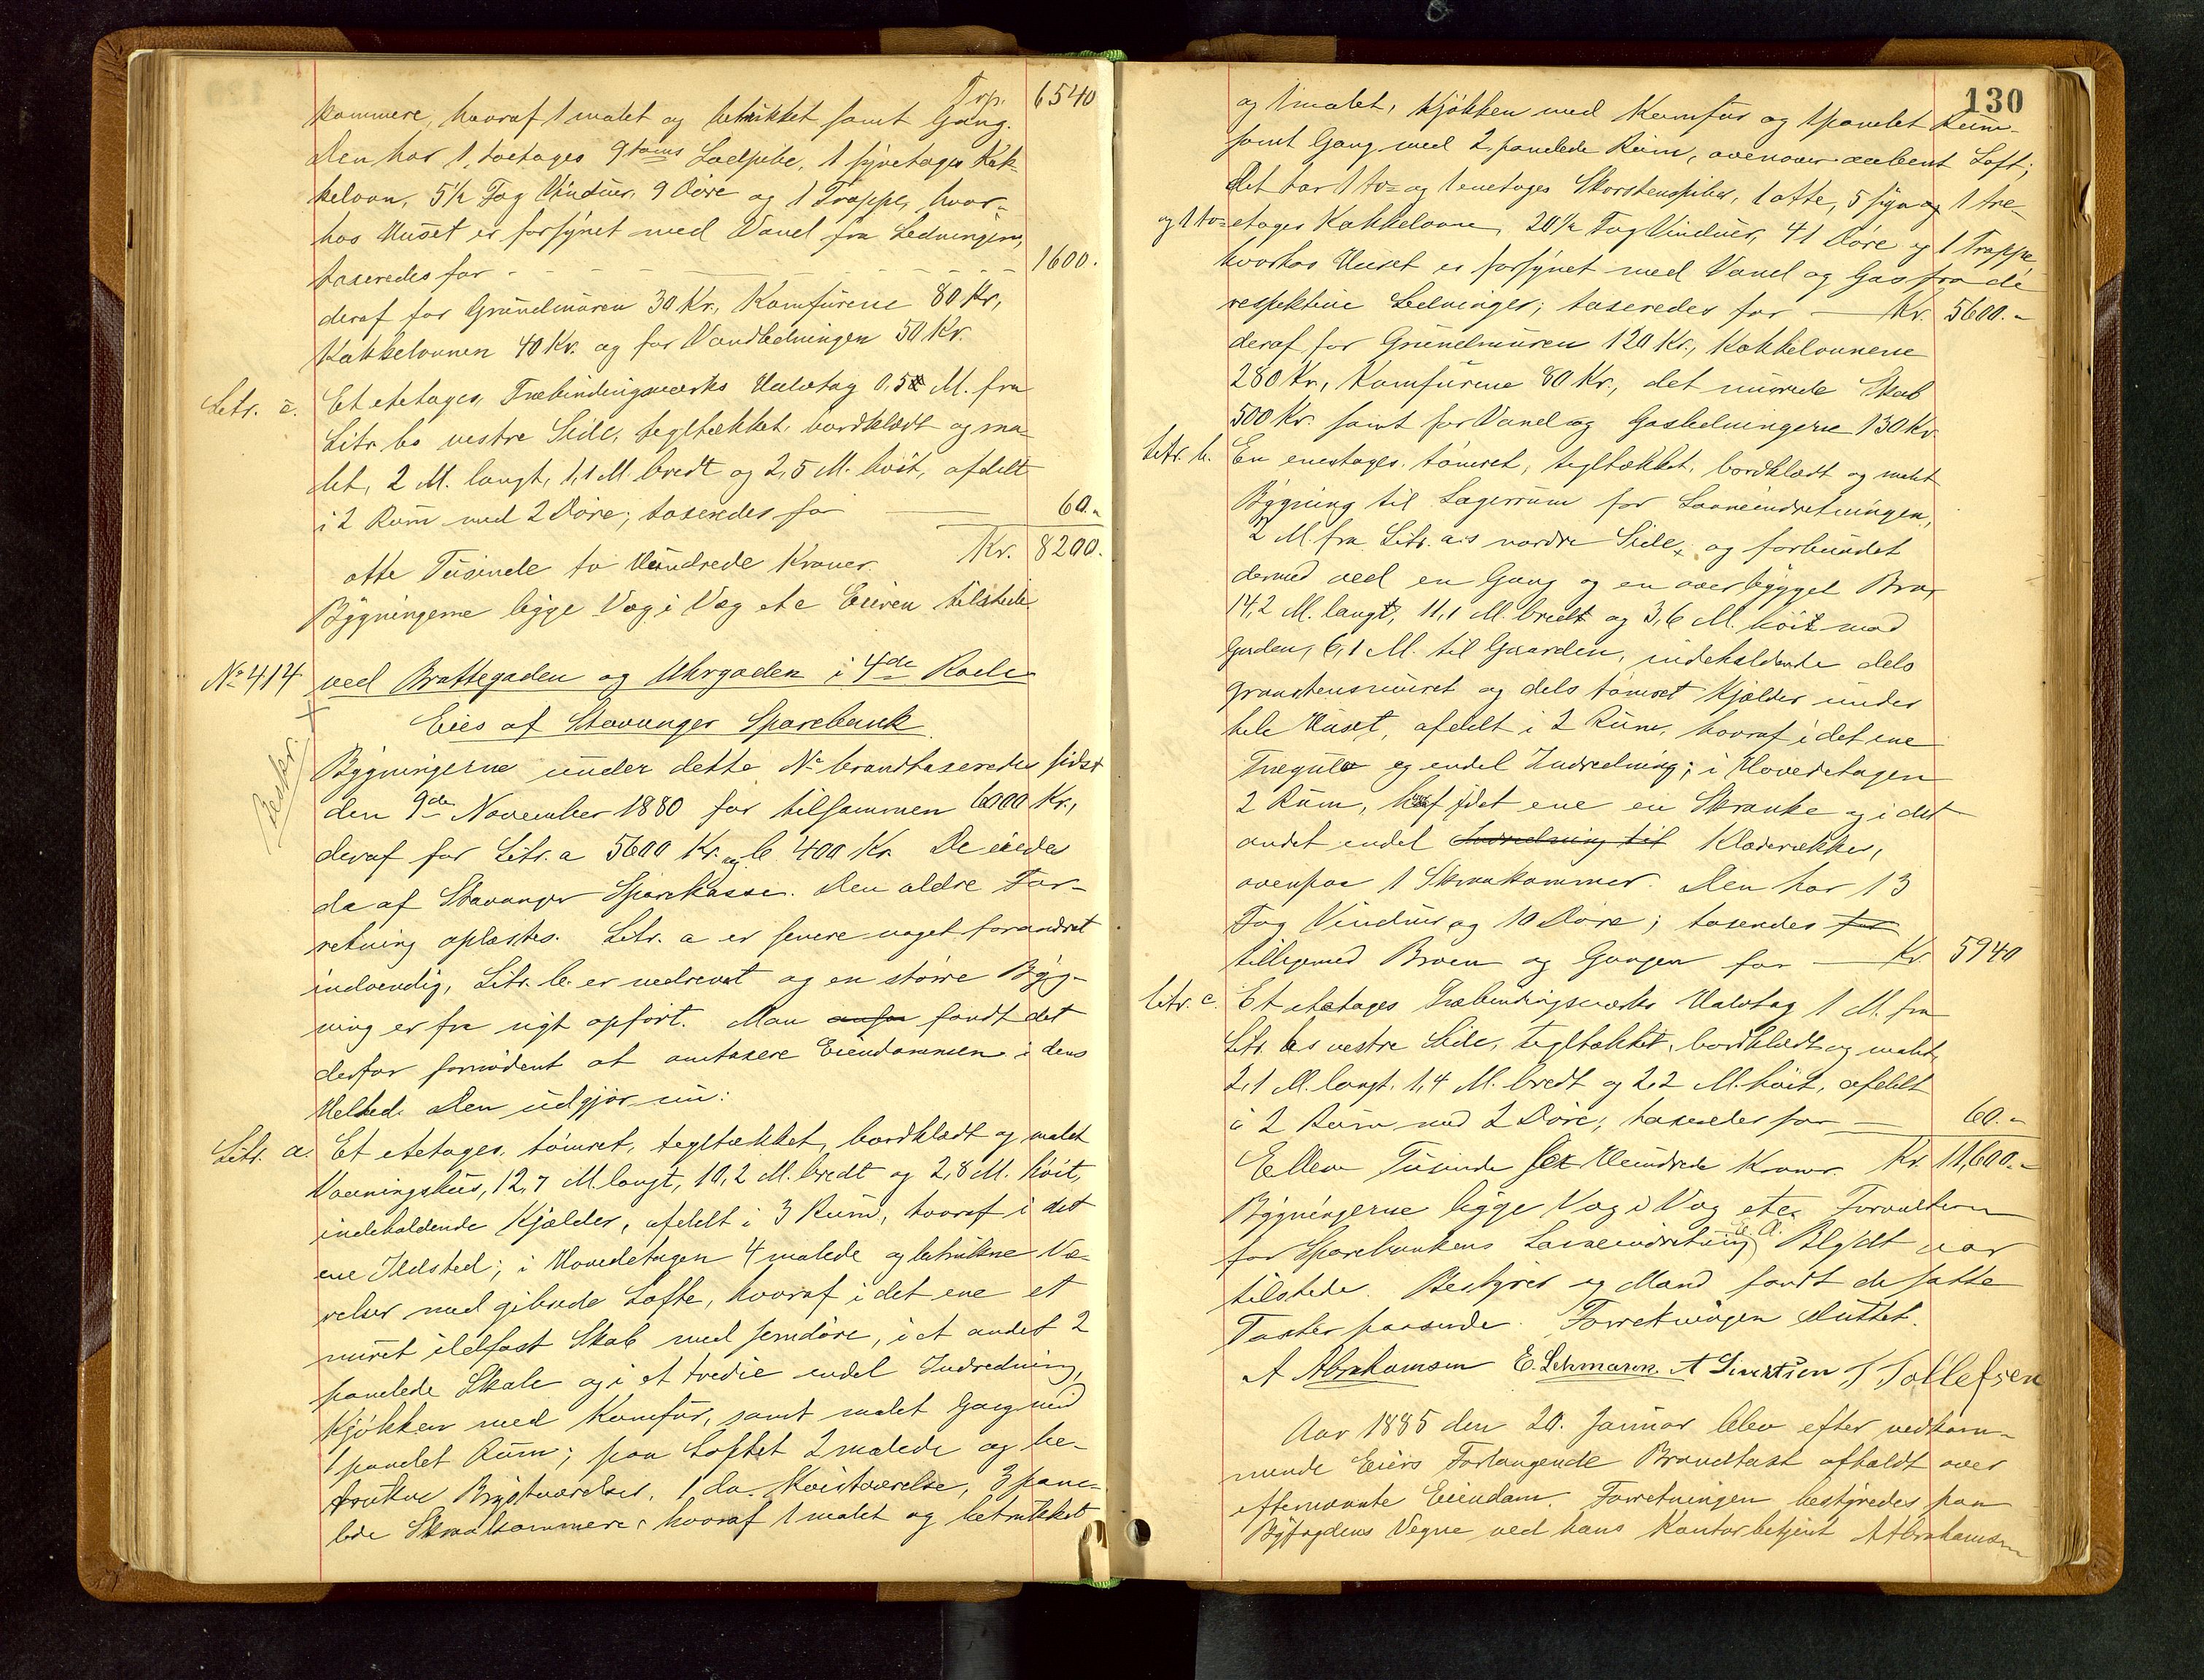 Trp. 6540
kammere, hvoraf 1 malet og betrukket samt Gang.
Den har 1, toetages 9toms Lædpibe, 1 syvetages Kak-
kelovn, 5½ Fag Vinduer, 9 Døre og 1 Trappe, hvor-
hos Huset er forsynet med Vand fra Ledningen,
taxeredes for - - - 1600.
deraf for Grundmuren 30 Kr., Komfurene 80 Kr.,
Kakkelovnen 40 Kr. og for Vandledningen 50 Kr.
Litr. c. Et etetages, Træbindingsverks Halvtag 0,5 M. fra
Litr. bs vestre Side, tegltækket, bordklædt og ma-
let, 2 M. langt, 1,1 M. bredt og 2,5 M. høit, afdelt
i 2 Rum med 2 Døre; taxeredes for 60.-
otte Tusinde to Hundrede Kroner. Kr. 8200.
Bygningerne ligge Væg i Væg etc Eieren tilstede.
No 414 ved Brattegaden og Uhrgaden i 4de Rode
Eies af Stavanger Sparebank
Bygningerne under dette No brandtaxeredes sidst
den 9de November 1880 for tilsammen 6000 Kr.,
deraf for Litr. a 5600 Kr. og b 400 Kr. De eiedes
da af Stavanger Sparekasse. Den ældre For-
retning oplæstes. Litr. a er senere noget forandret
indvendig, Litr. b. er nedrevet og en større Byg-
ning er fra nyt opført. Man ansa fandt det
derfor fornødent at omtaxere Eiendommen i dens
Helhed. Den udgjør nu:
Litr. a. Et etetages, tømret, tegltækket, bordklædt og malet
Vaaningshus, 12,7 M. langt, 10,2 M. bredt og 2,8 M. høit,
indeholdende Kjælder, afdelt i 3 Rum, hvoraf i det
ene Ildsted; i Hovedetagen 4 malede og betrukne Væ-
relser med gibsede Lofte, hvoraf i det ene et
muret ildfast Skab med Jerndøre, i et andet 2
panelede Skabe og i et tredie endel Indredning,
Kjøkken med Komfur, samt malet Gang med
1 panelet Rum; paa Loftet 2 malede og be-
trukne Brystværelser, 1 do. Kvistværelse, 3 pane-
lede Skraakammere, hvoraf 1 malet og betrukket
130
og 1 malet, Kjøkken med Komfur og 1 panelet Rum-
samt Gang med 2 panelede Rum, ovenover aabent Loft;
det har 1 to- og 1 enetages Skorstenspiber, 1 otte, 5 syv og 1 tre-
og 1 to-etages Kakkelovne, 20½ Fag Vinduer, 41 Døre og 1 Trappe
hvorhos Huset er forsynet med Vand og Gas fra de
respektive Ledninger; taxeredes for — Kr. 5600.-
deraf for Grundmuren 120 Kr., Kakkelovnene
280 Kr., Komfurene 80 Kr., det murede Skab
500 Kr. samt for Vand og Gasledningerne 130 Kr.
Litr. b. En enetages, tømret, tegltækket, bordklædt og malet
Bygning til Lagerrum for Laaneindretningen,
2 M. fra Litr. a's nordre Side, og forbundet
dermed ved en Gang og en overbygget Bro,
14,2 M. langt, 11,1 M. bredt og 3,6 M. høit mod
Gaden, 6,1 M. til Gaarden, indeholdende dels
graastensmuret og dels tømret Kjælder under
hele Huset, afdelt i 2 Rum, hvoraf i det ene
Trægulv og endel Indredning; i Hovedetagen
2 Rum, hvoraf i det ene en Skranke og i det
andet endel Indredning til Klæderækker,
ovenpaa 1 Skraakammer. Den har 13
Fag Vinduer og 10 Døre; taxeredes for
tilligemed Broen og Gangen for — Kr. 5940
Litr. c. Et etetages Træbindingsverks Halvtag 1 M. fra
Litr. bs vestre Side, tegltækket, bordklædt og malet,
2,1 M. langt, 1,4 M. bredt og 2,2 M. høit, afdelt
i 2 Rum med 2 Døre; taxeredes for — 60.-
Elleve Tusinde sex Hundrede Kroner. Kr. 11,600.-
Bygningerne ligge Væg i Væg etc. Forvalteren
for Sparebankens Laaneindretning A. Blydt var
tilstede. Bestyrer og Mænd fandt de satte
Taxter passende. Forretningen sluttet.
A Abrahamsen E. Lehmann. A Sivertsen T Tollefsen
Aar 1885 den 20. Januar blev efter vedkom-
mende Eiers Forlangende Brandtaxt afholdt over
efternævnte Eiendom. Forretningen bestyredes paa
Byfogdens Vegne ved hans Kontorbetjent A Abrahamsen